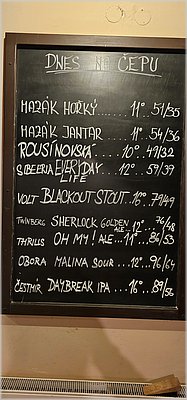 DNES NA ČEPU
MAZÁK HOŘKÝ.....11° 51/35
MAZÁK JANTAR....11° 54/36
ROUSÍNOVSKÁ....10° 49/32
SIBEERIA EVERYDAY LIFE...12° 59/39
VOLT BLACKOUT STOUT.16° 79/49
TWINBERG SHERLOCK GOLDEN ALE..12° 76/48
THRILLS OH MY! ALE...11° 86/53
OBORA MALINA SOUR...12° 96/64
ČESTMÍR DAYBREAK IPA...16° 89/56